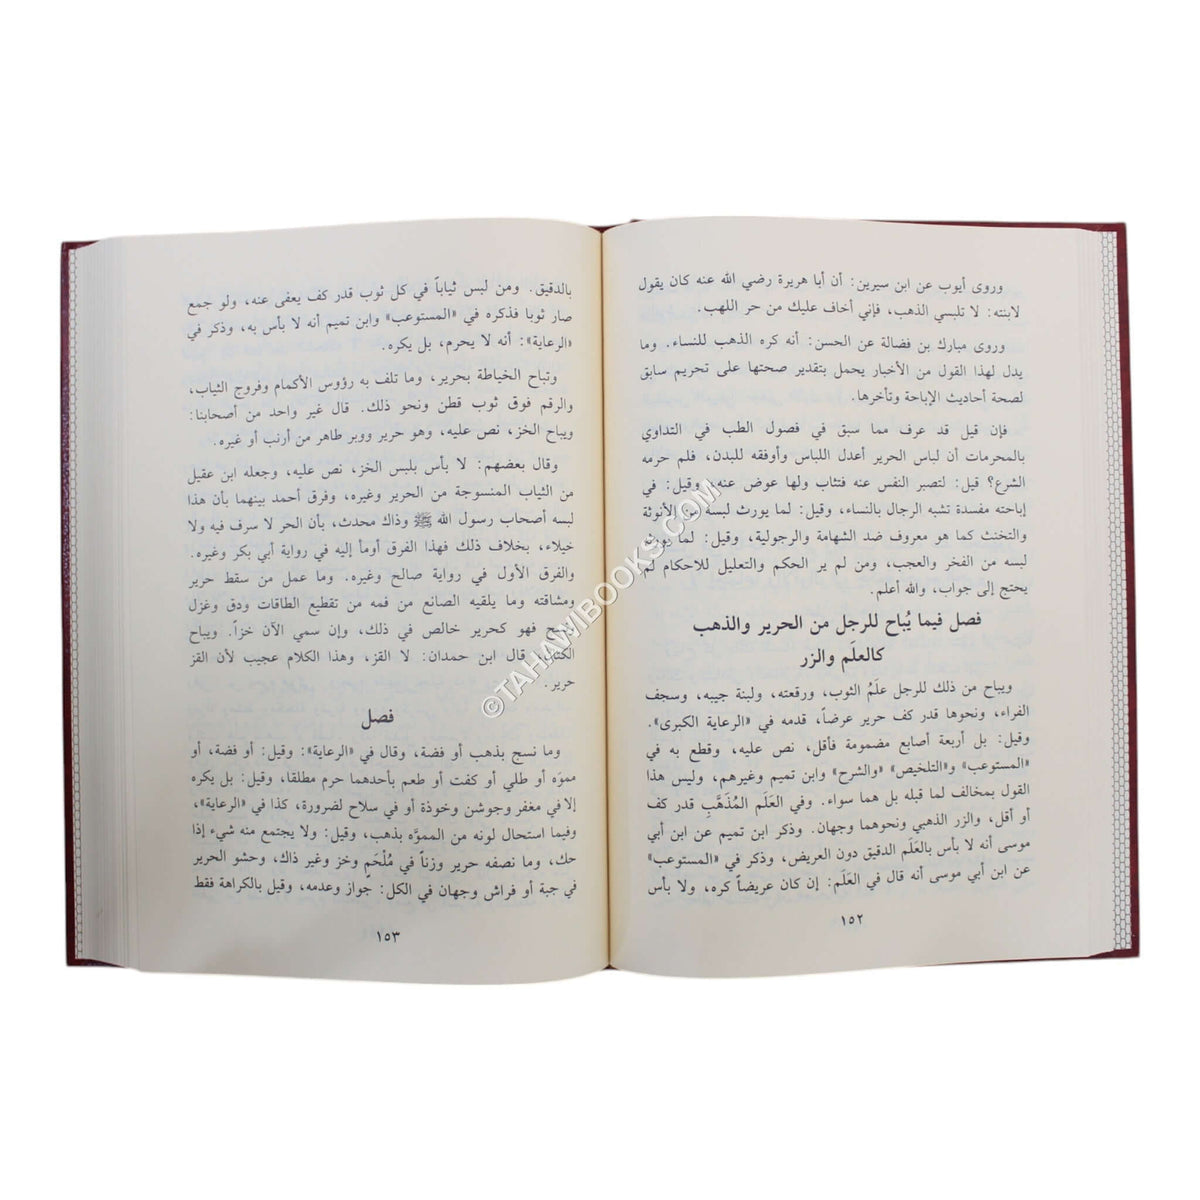 وروى أيوب عن ابن سيرين: أن أبا هريرة رضي الله عنه كان يقول
لابنته: لا تلبسي الذهب، فإني أخاف عليك من حر اللهب.
وروى مبارك بن فضالة عن الحسن: أنه كره الذهب للنساء. وما
يدل لهذا القول من الأخبار يحمل بتقدير صحتها على تحريم سابق
لصحة أحاديث الإباحة وتأخرها.
فإن قيل قد عرف مما سبق في فصول الطب في التداوي
بالمحرمات أن لباس الحرير أعدل اللباس وأوفقه للبدن، فلم حرمه
الشرع؟ قيل: لتصبر النفس عنه فتثاب ولها عوض عنه، وقيل: في
إباحته مفسدة تشبه الرجال بالنساء، وقيل: لما يورث لبسه من الأنوثة
والتخنث كما هو معروف ضد الشهامة والرجولية، وقيل: لما يورثه
لبسه من الفخر والعجب، ومن لم ير الحكم والتعليل للاحكام لم
يحتج إلى جواب، والله أعلم.
فصل فيما يُباح للرجل من الحرير والذهب
كالعلَم والزر
ويباح من ذلك للرجل علَمُ الثوب، ورقعته، ولبنة جيبه، وسجف
الفراء، ونحوها قدر كف حرير عرضاً، قدمه في «الرعاية الكبرى».
وقيل: بل أربعة أصابع مضمومة فأقل، نص عليه، وقطع به في
«المستوعب» و«التلخيص» «والشرح» وابن تميم وغيرهم، وليس هذا
القول بمخالف لما قبله بل هما سواء. وفي العلَم المُذَهَّبِ قدر كف
أو أقل، والزر الذهبي ونحوهما وجهان. وذكر ابن تميم عن ابن أبي
موسى أنه لا بأس بالعلَم الدقيق دون العريض، وذكر في «المستوعب»
عن ابن أبي موسى أنه قال في العلَم: إن كان عريضاً كره، ولا بأس
١٥٢
بالدقيق. ومن لبس ثياباً في كل ثوب قدر كف يعفى عنه، ولو جمع
صار ثوبا فذكره في «المستوعب» وابن تميم أنه لا بأس به، وذكر في
«الرعاية»: أنه لا يحرم، بل يكره.
وتباح الخياطة بحرير، وما تلف به رؤوس الأكمام وفروج الثياب،
والرقم فوق ثوب قطن ونحو ذلك. قال غير واحد من أصحابنا:
ويباح الخز، نص عليه، وهو حرير ووبر طاهر من أرنب أو غيره.
وقال بعضهم: لا بأس بلبس الخز، نص عليه، وجعله ابن عقيل
من الثياب المنسوجة من الحرير وغيره، وفرق أحمد بينهما بأن هذا
لبسه أصحاب رسول الله ﷺ وذاك محدث، بأن الحر لا سرف فيه ولا
خيلاء، بخلاف ذلك فهذا الفرق أومأ إليه في رواية أبي بكر وغيره.
والفرق الأول في رواية صالح وغيره. وما عمل من سقط حرير
ومشاقته وما يلقيه الصانع من فمه من تقطيع الطاقات ودق وغزل
ونسج فهو كحرير خالص في ذلك، وإن سمي الآن خزاً. ويباح
الكتان، قال ابن حمدان: لا القز، وهذا الكلام عجيب لأن القز
حرير.
فصل
وما نسج بذهب أو فضة، وقال في «الرعاية»: وقيل: أو فضة، أو
مموّه أو طلي أو كفت أو طعم بأحدهما حرم مطلقا، وقيل: بل يكره
إلا في مغفر وجوشن وخوذة أو في سلاح لضرورة، كذا في «الرعاية»،
وفيما استحال لونه من المموَّه بذهب، وقيل: ولا يجتمع منه شيء إذا
حك، وما نصفه حرير وزناً في مُلْحَمٍ وخز وغير ذاك، وحشو الحرير
في جبة أو فراش وجهان في الكل: جواز وعدمه، وقيل بالكراهة فقط
١٥٣
©TAHAWIBOOKS.COM